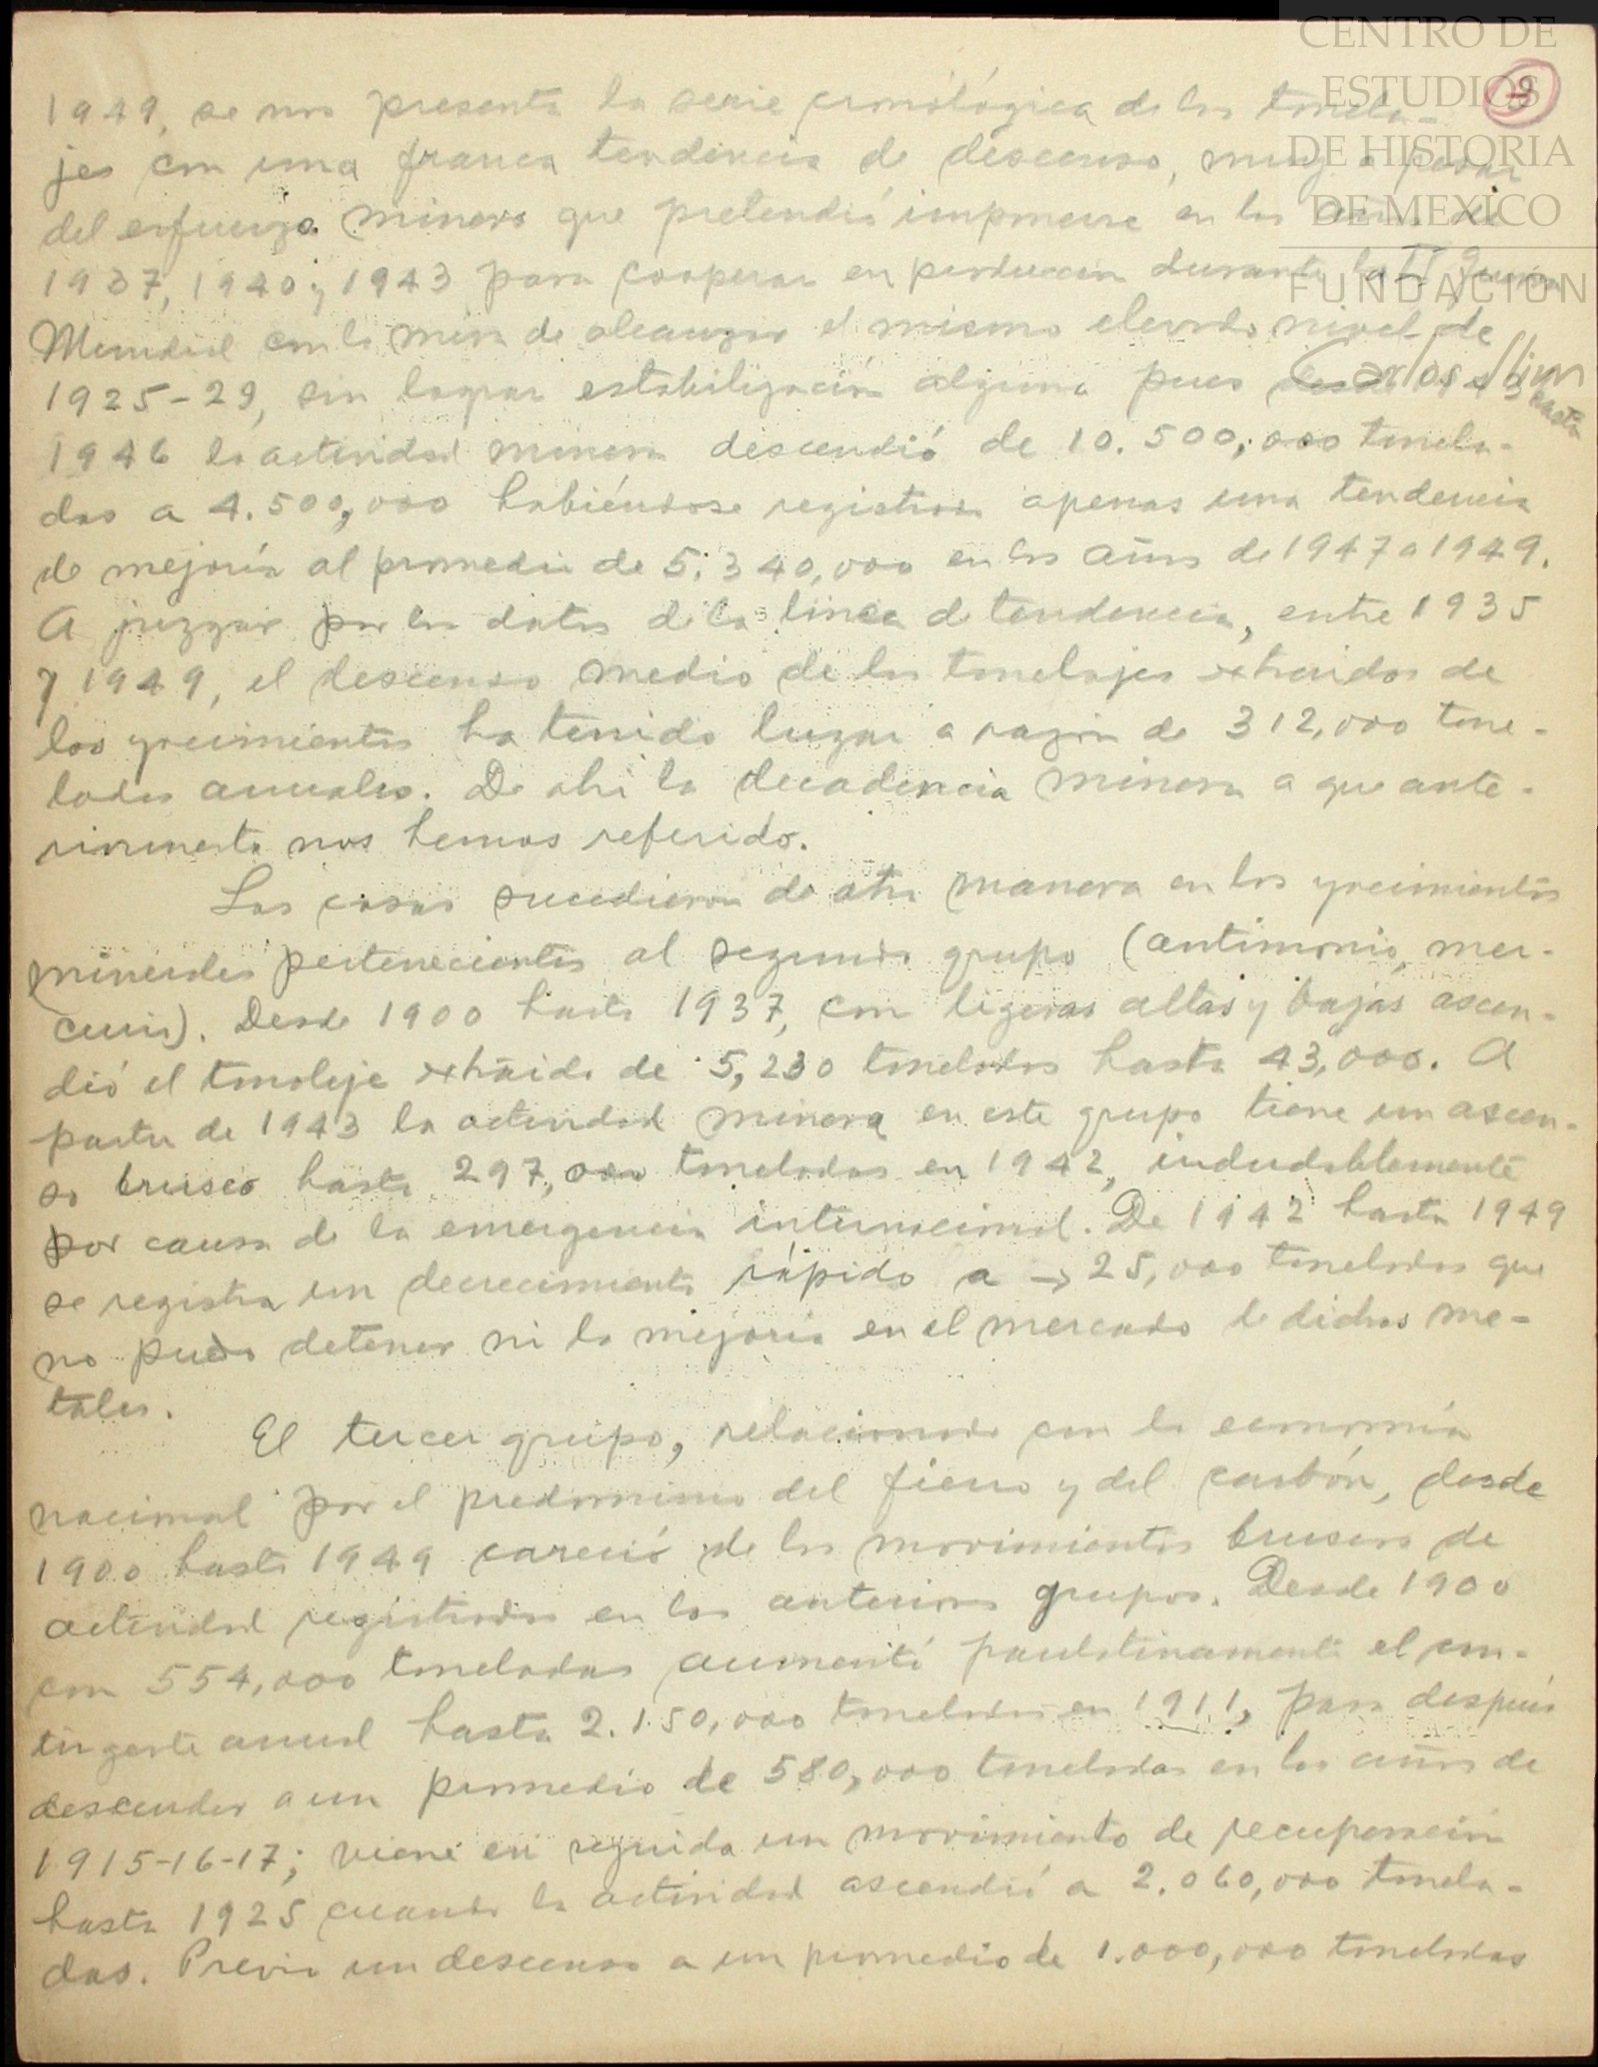 CENTRO DE
ESTUDIOS
DE HISTORIA
DE MEXICO
FUNDACION
Carlos Slim
1949, se nos presenta la serie cronológica de los tonela-
jes con una franca tendencia de descenso, muy a pesar
del esfuerzo minero que pretendió imprimirse en los años de
1937, 1940 y 1943 para cooperar en producción durante la II Guerra
Mundial con la mira de alcanzar el mismo elevado nivel de
1925-29, sin lograr estabilización alguna pues hasta
1946 la actividad minera descendió de 10.500,000 tonela-
das a 4.500,000 habiéndose registrado apenas una tendencia
de mejoría al promedio de 5.340,000 en los años de 1947 a 1949.
A juzgar por los datos de la linea de tendencia, entre 1935
y 1949, el descenso medio de los tonelajes extraidos de
los yacimientos ha tenido lugar a razón de 312,000 tone-
ladas anuales. De ahi la decadencia minera a que ante-
riormente nos hemos referido.
Las cosas sucedieron de otra manera en los yacimientos
minerales pertenecientes al segundo grupo (antimonio, mer-
curio). Desde 1900 hasta 1937, con ligeras altas y bajas ascen-
dió el tonelaje extraido de 5,230 toneladas hasta 43,000. A
partir de 1943 la actividad minera en este grupo tiene un ascen-
so brusco hasta 297,000 toneladas en 1942, indudablemente
por causa de la emergencia internacional. De 1942 hasta 1949
se registra un decrecimiento rápido a → 25,000 toneladas que
no pudo detener ni la mejoria en el mercado de dichos me-
tales.
El tercer grupo, relacionado con la economía
nacional por el predominio del fierro y del carbón, desde
1900 hasta 1949 careció de los movimientos bruscos de
actividad registrados en los anteriores grupos. Desde 1900
con 554,000 toneladas aumentó paulatinamente el con-
tingente anual hasta 2.150,000 toneladas en 1911, para después
descender a un promedio de 580,000 toneladas en los años de
1915-16-17; viene en seguida un movimiento de recuperación
hasta 1925 cuando la actividad ascendió a 2.060,000 tonela-
das. Previo un descenso a un promedio de 1.000,000 toneladas